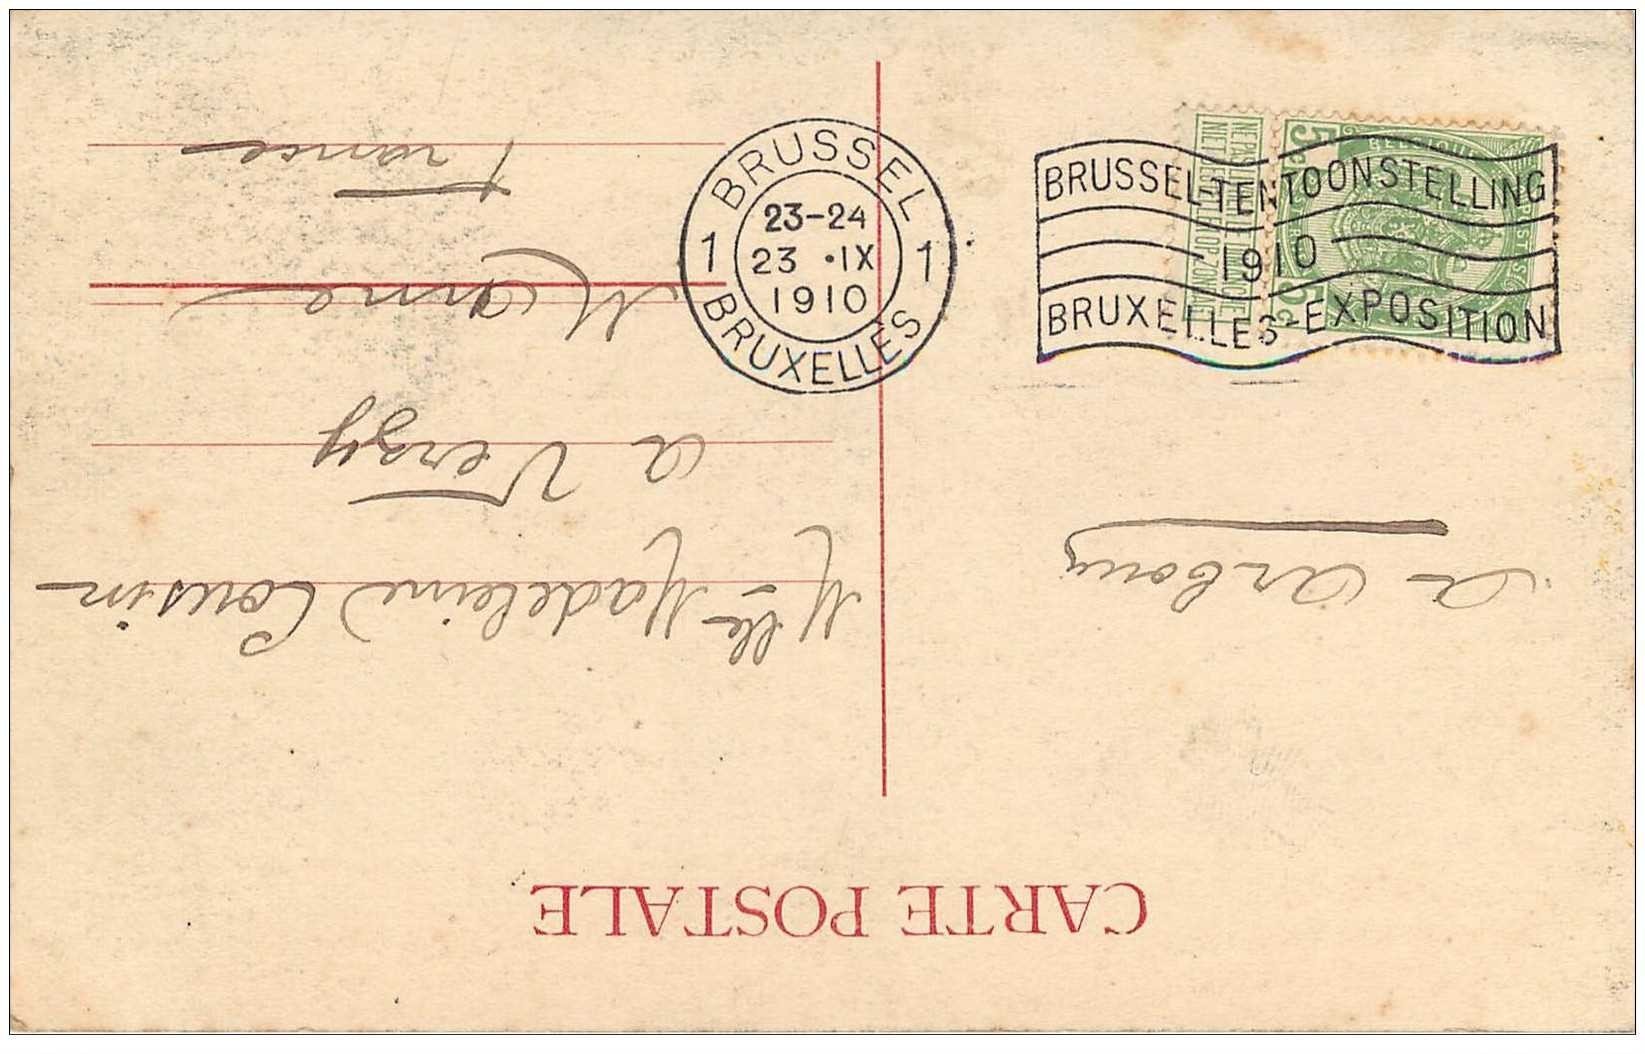 CARTE POSTALE
Mlle Madeleine Cousin
a Verzy
Marne
France
BRUSSEL
1 23-24 1
23 •IX
1910
BRUXELLES
BRUSSEL-TENTOONSTELLING
1910
BRUXELLES-EXPOSITION
5c
BELGIQUE